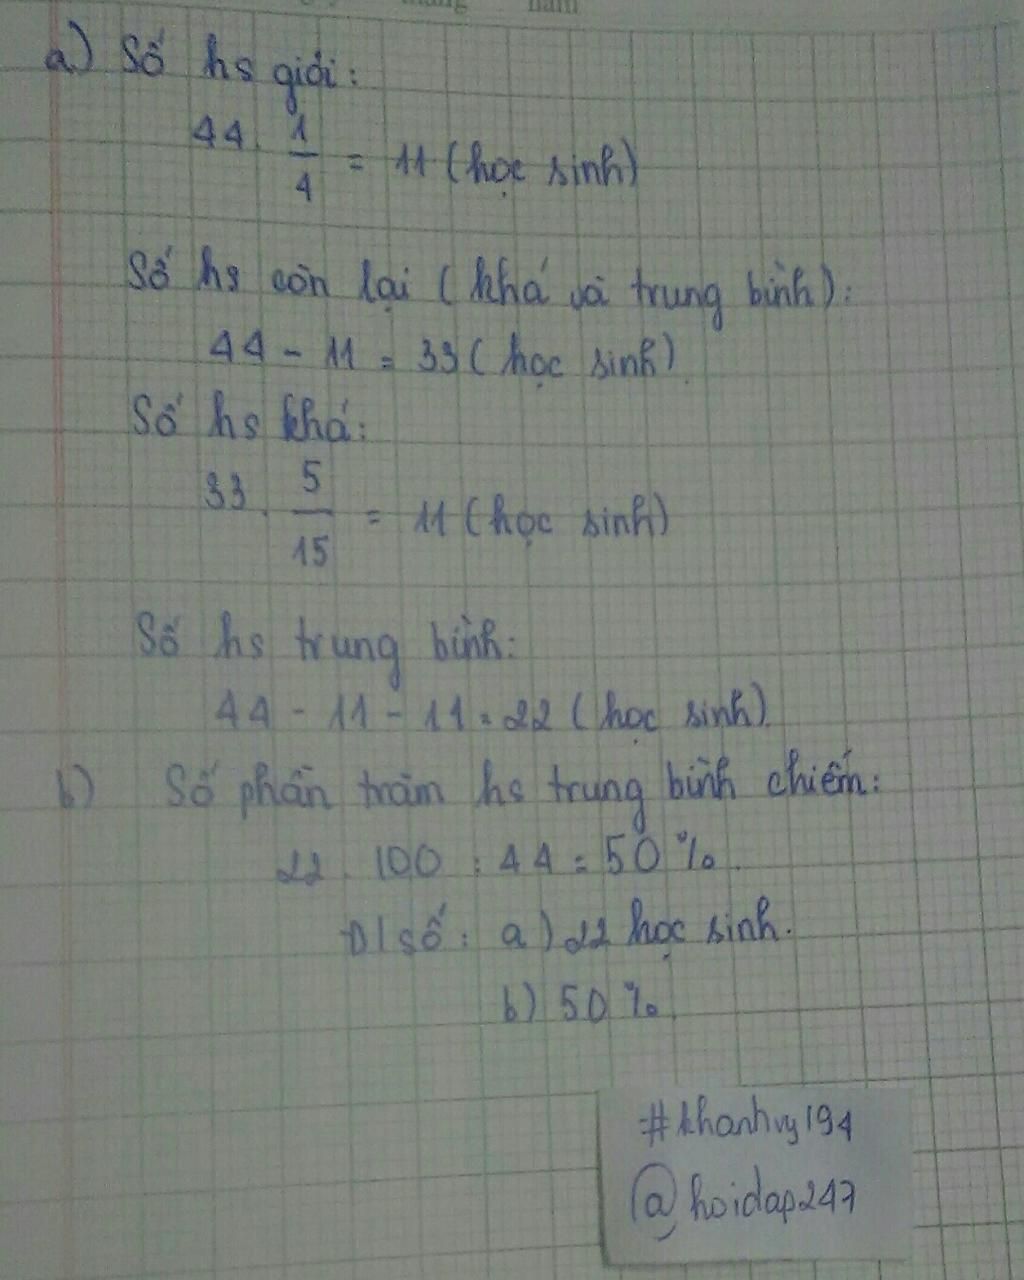 tháng năm
a) Số hs giỏi:
44 . 1/4 = 11 (học sinh)
Số hs còn lại (khá và trung bình):
44 - 11 = 33 (học sinh)
Số hs khá:
33 . 5/15 = 11 (học sinh)
Số hs trung bình:
44 - 11 - 11 = 22 (học sinh)
b) Số phần trăm hs trung bình chiếm:
22 . 100 : 44 = 50 %.
Đ/số: a) 22 học sinh.
b) 50 %
#khanhvy194
@hoidap247